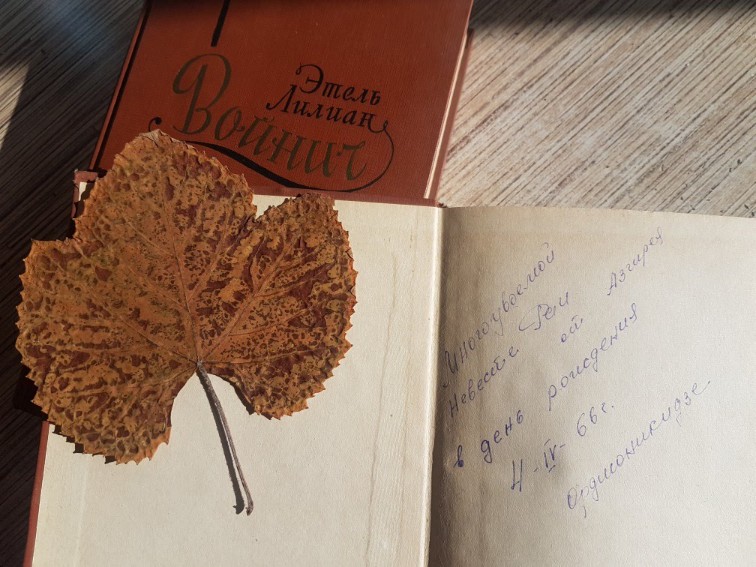 Этель
Лилиан
Войнич
Многоуваемой
Невесте Рэи от Азгирея
в день рождения
4-IV-66г.
Орджоникидзе